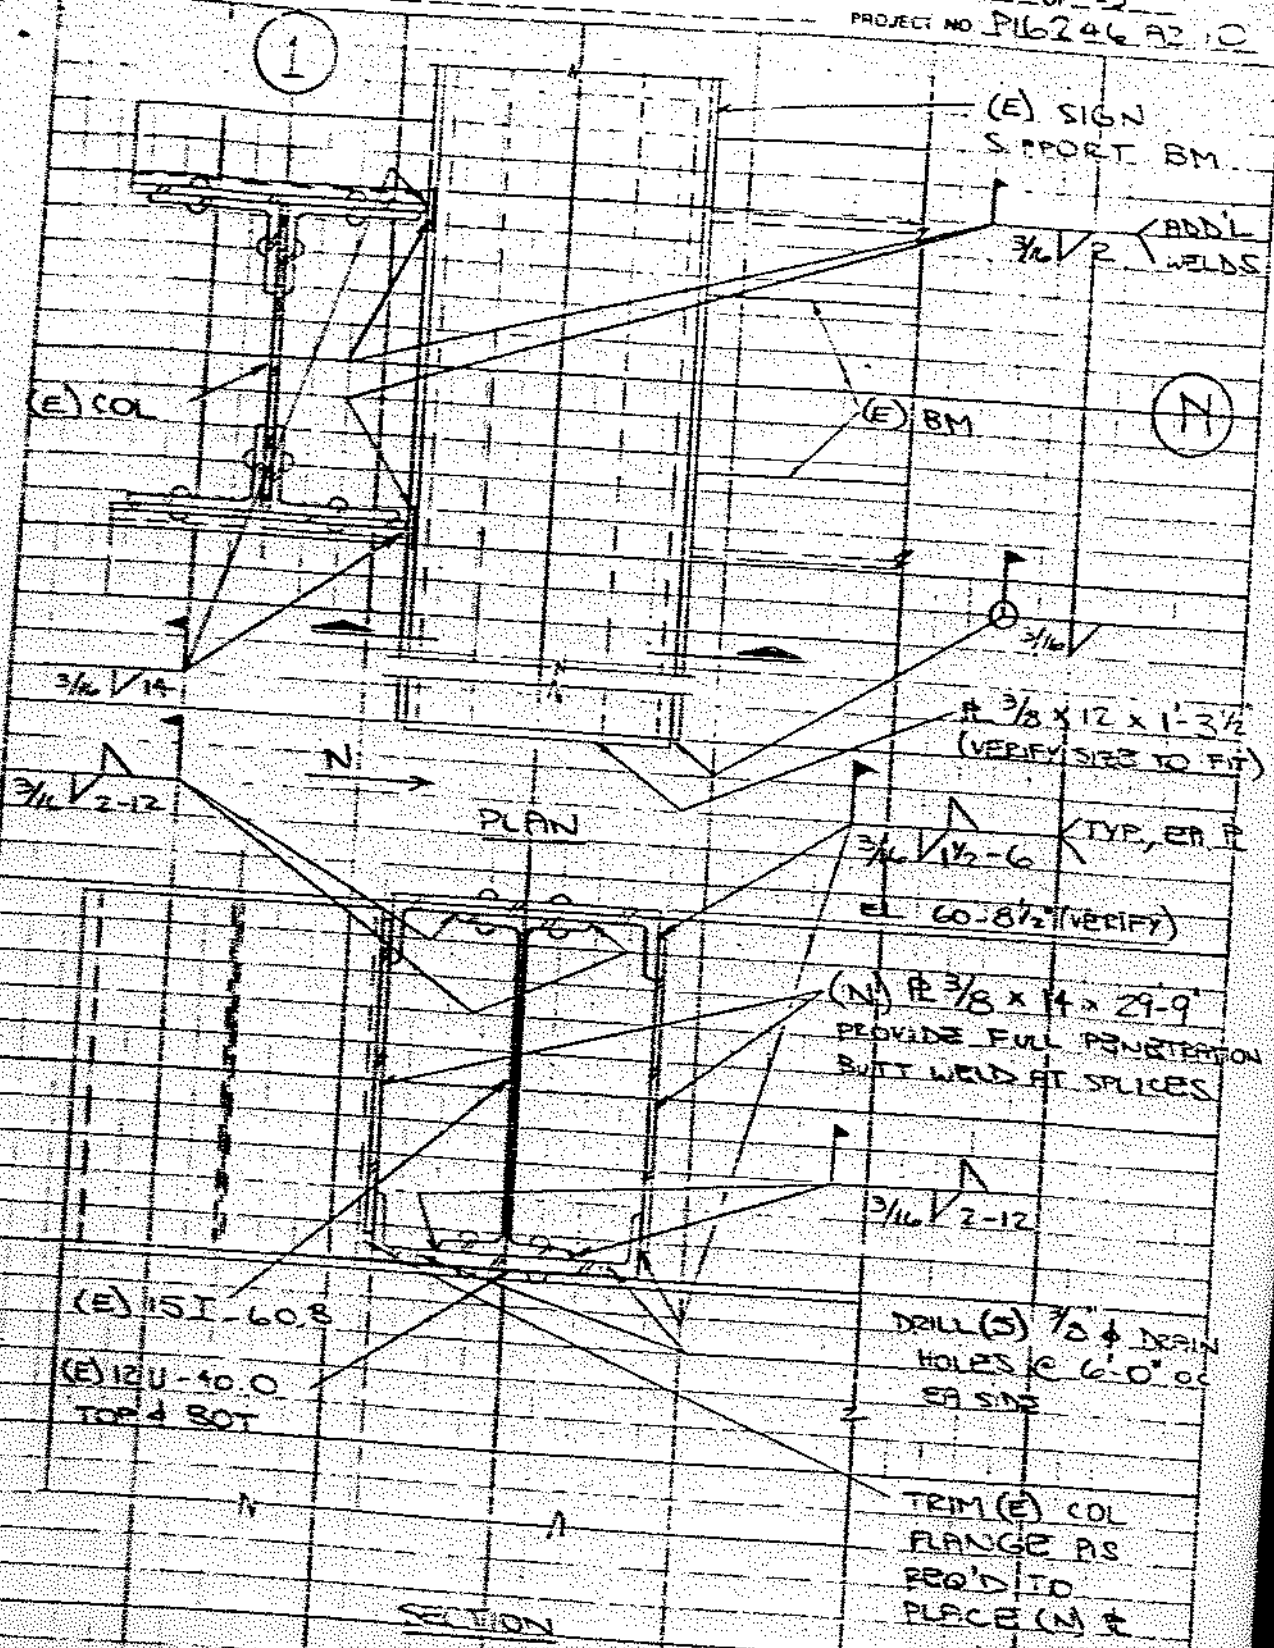 PROJECT NO P16246
1
(E) SIGN
SUPPORT BM
3/16 2
ADD'L
WELDS
(E) COL
(E) BM
N
3/16
3/16 14
PL 3/8 x 12 x 1'-3 1/2"
(VERIFY SIZE TO FIT)
3/16 2-12
N
PLAN
3/16 1 1/2-6
TYP., EA PL
EL 60-8 1/2" (VERIFY)
(N) PL 3/8 x 14 x 29'-9"
PROVIDE FULL PENETRATION
BUTT WELD AT SPLICES
3/16 2-12
(E) 15I-60.8
(E) 12U-40.0
TOP & BOT
DRILL (5) ϕ DRAIN
HOLES @ 6'-0" OC
EA SIDE
TRIM (E) COL
FLANGE AS
REQ'D TO
PLACE (N) PL
SECTION